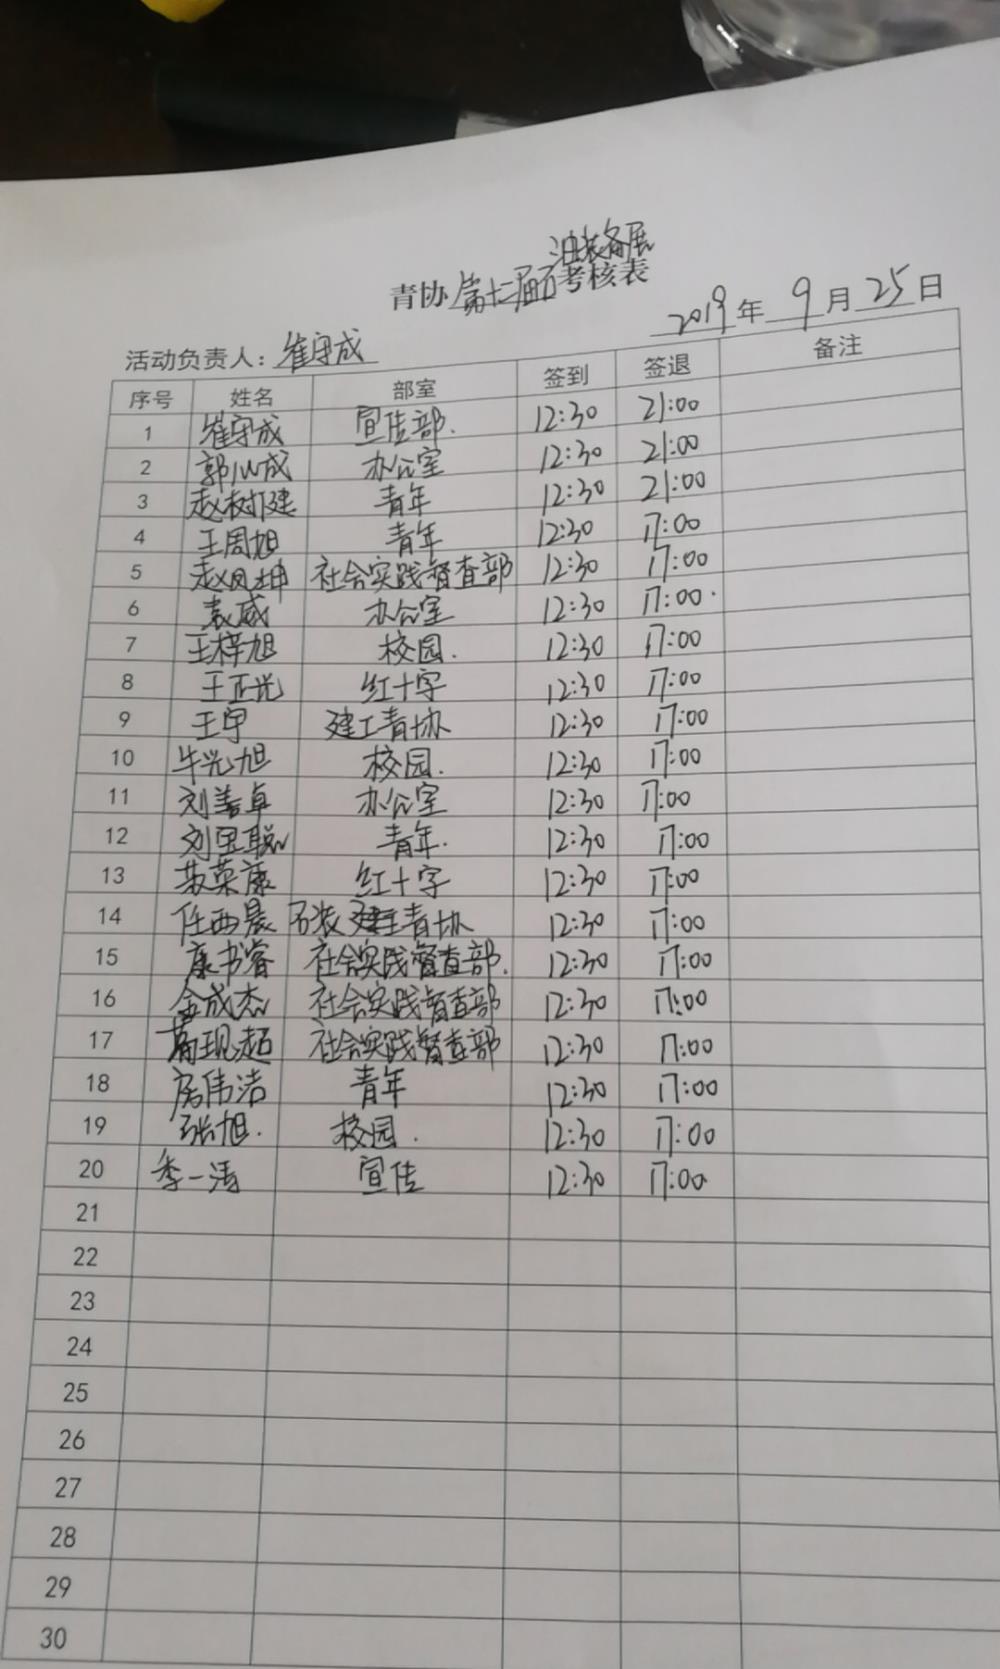 油装备展
青协第十二届石考核表
2019年9月25日
活动负责人：崔守成
序号 姓名 部室 签到 签退 备注
1 崔守成 宣传部. 12:30 21:00
2 郭心成 办公室 12:30 21:00
3 赵树建 青年 12:30 21:00
4 王周旭 青年 12:30 17:00
5 赵凤坤 社会实践督查部 12:30 17:00
6 袁威 办公室 12:30 17:00.
7 王梓旭 校园. 12:30 17:00
8 王正光 红十字 12:30 17:00
9 王宇 建工青协 12:30 17:00
10 牛光旭 校园. 12:30 17:00
11 刘善卓 办公室 12:30 17:00
12 刘聪 青年. 12:30 17:00
13 苏荣康 红十字 12:30 17:00
14 任西晨 石装建工青协 12:30 17:00
15 康书睿 社会实践督查部. 12:30 17:00
16 金成杰 社会实践督查部 12:30 17:00
17 现超 社会实践督查部 12:30 17:00
18 房伟洁 青年 12:30 17:00
19 张旭. 校园. 12:30 17:00
20 李一涛 宣传 12:30 17:00
21
22
23
24
25
26
27
28
29
30